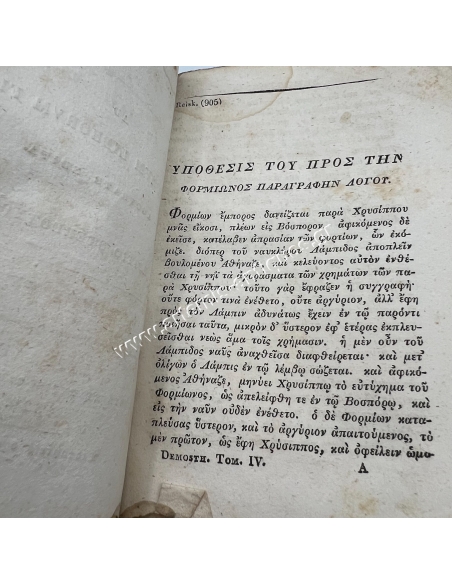 Reisk. (905)
ΥΠΟΘΕΣΙΣ ΤΟΥ ΠΡΟΣ ΤΗΝ
ΦΟΡΜΙΩΝΟΣ ΠΑΡΑΓΡΑΦΗΝ ΛΟΓΟΥ.
Φορμίων ἔμπορος δανείζεται παρὰ Χρυσίππου
μνᾶς εἴκοσι, πλέων εἰς Βόσπορον. ἀφικόμενος δὲ
ἐκεῖσε, κατέλαβεν ἀπρασίαν τῶν φορτίων, ὧν ἐκό-
μιζε. διόπερ τοῦ ναυκλήρου Λάμπιδος ἀποπλεῖν
βουλομένου Ἀθήναζε, καὶ κελεύοντος αὐτὸν ἐνθέ-
σθαι τῇ νηῒ τὰ ἀγοράσματα τῶν χρημάτων τῶν πα-
ρὰ Χρυσίππου· τοῦτο γὰρ ἔφραζεν ἡ συγγραφή·
οὔτε φόρτον τινὰ ἐνέθετο, οὔτε ἀργύριον, ἀλλ' ἔφη
πρὸς τὸν Λάμπιν ἀδυνάτως ἔχειν ἐν τῷ παρόντι
ποιῆσαι ταῦτα, μικρὸν δ' ὕστερον ἐφ' ἑτέρας ἐκπλευ-
σεῖσθαι νεὼς ἅμα τοῖς χρήμασιν. ἡ μὲν οὖν τοῦ
Λάμπιδος ναῦς ἀναχθεῖσα διαφθείρεται· καὶ μετ'
ὀλίγων ὁ Λάμπις ἐν τῷ λέμβῳ σώζεται. καὶ ἀφικό-
μενος Ἀθήναζε, μηνύει Χρυσίππῳ τὸ εὐτύχημα τοῦ
Φορμίωνος, ὡς ἀπελείφθη τε ἐν τῷ Βοσπόρῳ, καὶ
εἰς τὴν ναῦν οὐδὲν ἐνέθετο. ὁ δὲ Φορμίων κατα-
πλεύσας ὕστερον, καὶ τὸ ἀργύριον ἀπαιτούμενος, τὸ
μὲν πρῶτον, ὡς ἔφη Χρύσιππος, καὶ ὀφείλειν ὡμο-
Demosth. Tom. IV. A